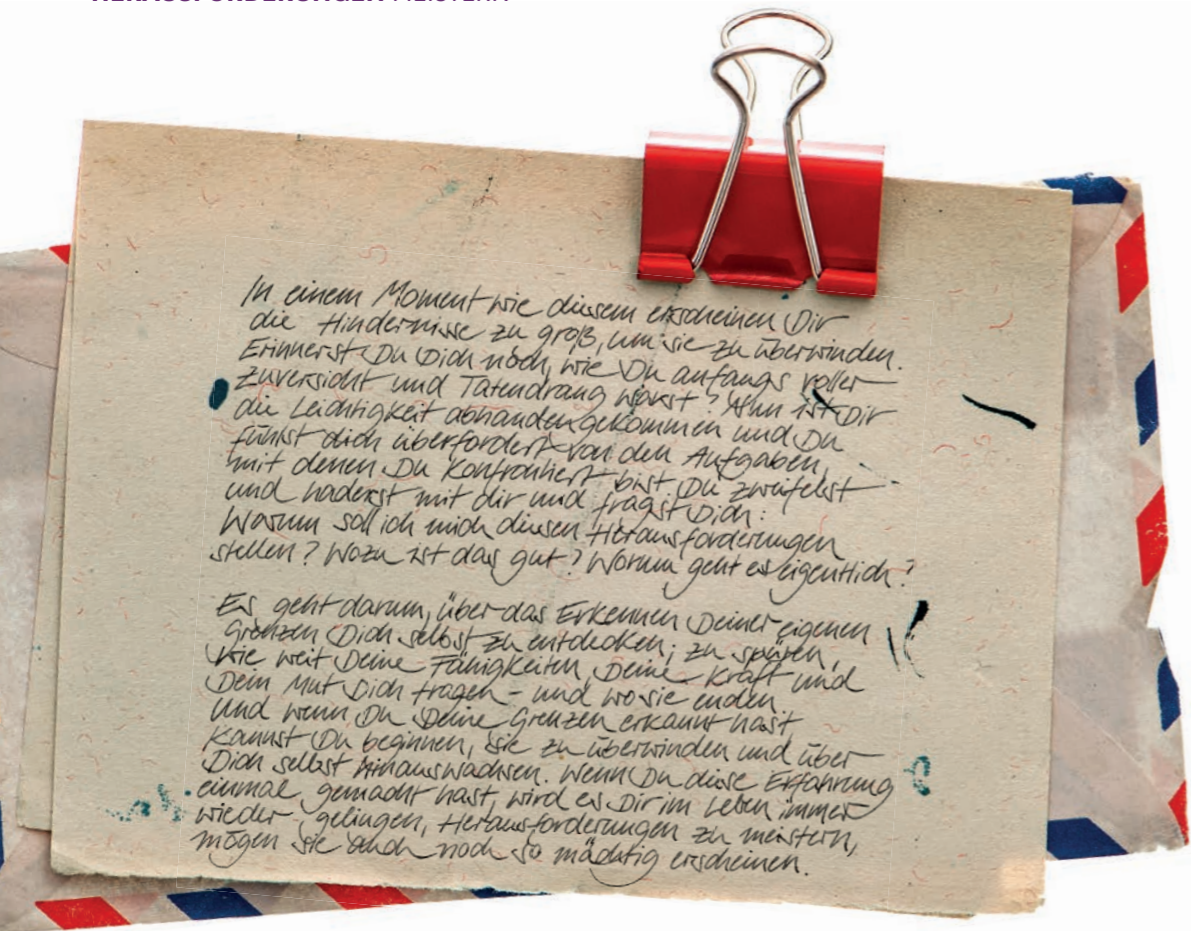 HERAUSFORDERUNGEN MEISTERN
In einem Moment wie diesem erscheinen Dir
die Hindernisse zu groß, um sie zu überwinden.
Erinnerst Du Dich noch, wie Du anfangs voller
Zuversicht und Tatendrang warst? Nun ist Dir
die Leichtigkeit abhandengekommen und Du
fühlst dich überfordert von den Aufgaben,
mit denen Du konfrontiert bist. Du zweifelst
und haderst mit dir und fragst Dich:
Warum soll ich mich diesen Herausforderungen
stellen? Wozu ist das gut? Worum geht es eigentlich?
Es geht darum, über das Erkennen Deiner eigenen
Grenzen Dich selbst zu entdecken; zu spüren,
wie weit Deine Fähigkeiten, Deine Kraft und
Dein Mut Dich tragen – und wo sie enden.
Und wenn Du Deine Grenzen erkannt hast
kannst Du beginnen, sie zu überwinden und über
Dich selbst hinauswachsen. Wenn Du diese Erfahrung
einmal gemacht hast, wird es Dir im Leben immer
wieder gelingen, Herausforderungen zu meistern,
mögen sie auch noch so mächtig erscheinen.